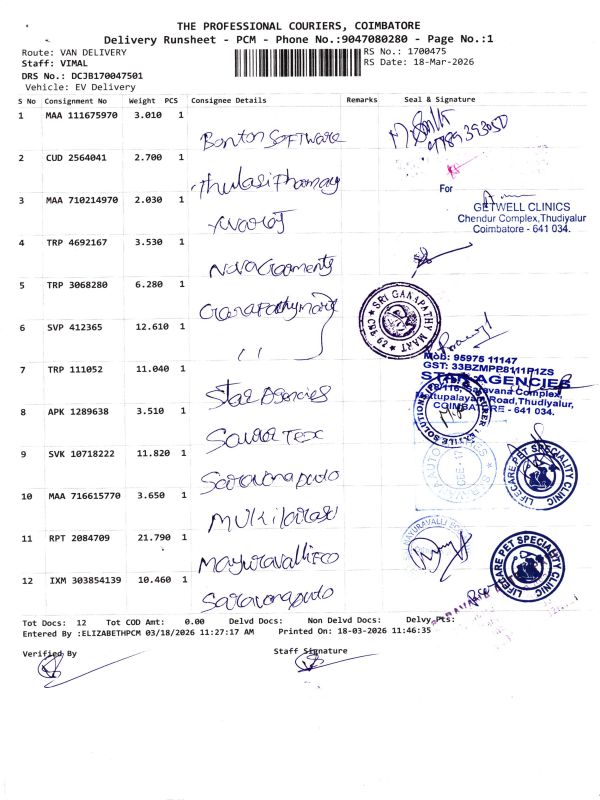 THE PROFESSIONAL COURIERS, COIMBATORE
Delivery Runsheet - PCM - Phone No.:9047080280 - Page No.:1
Route: VAN DELIVERY
RS No.: 1700475
Staff: VIMAL
RS Date: 18-Mar-2026
DRS No.: DCJB170047501
Vehicle: EV Delivery
S No Consignment No Weight PCS Consignee Details Remarks Seal & Signature
1 MAA 111675970 3.010 1
Bonton Software
9789393050
2 CUD 2564041 2.700 1
3 MAA 710214970 2.030 1
For
GETWELL CLINICS
Chendur Complex,Thudiyalur
Coimbatore - 641 034.
Yuvaraj
4 TRP 4692167 3.530 1
Nava Garments
5 TRP 3068280 6.280 1
Ganapathy mart
SRI GANAPATHY MART
CBE
6 SVP 412365 12.610 1
" "
7 TRP 111052 11.040 1
Mob: 95975 11147
GST: 33BZMPP8111P1ZS
STAR AGENCIES
Saravana Complex,
Road,Thudiyalur,
COIMBATORE - 641 034.
Star Agencies
8 APK 1289638 3.510 1
TEXTILE SOLUTIONS
9 SVK 10718222 11.820 1
Saravana auto
LIFECARE PET SPECIALITY CLINIC
10 MAA 716615770 3.650 1
11 RPT 2084709 21.790 1
Mayuravalli Eco
MAYURAVALLI
LIFECARE PET SPECIALITY CLINIC
12 IXM 303854139 10.460 1
Saravana auto
Tot Docs: 12 Tot COD Amt: 0.00 Delvd Docs: Non Delvd Docs: Delvy Pts:
Entered By :ELIZABETHPCM 03/18/2026 11:27:17 AM Printed On: 18-03-2026 11:46:35
Verified By
Staff Signature